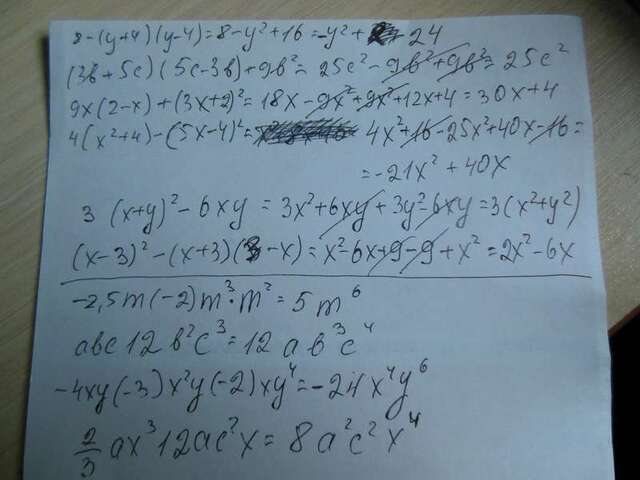 8-(y+4)(y-4)=8-y²+16=-y²+24
(3b+5c)(5c-3b)+9b²=25c²-9b²+9b²=25c²
9x(2-x)+(3x+2)²=18x-9x²+9x²+12x+4=30x+4
4(x²+4)-(5x-4)²=4x²+16-25x²+40x-16=
=-21x²+40x
3(x+y)²-6xy=3x²+6xy+3y²-6xy=3(x²+y²)
(x-3)²-(x+3)(3-x)=x²-6x+9-9+x²=2x²-6x
-2,5m(-2)m³·m²=5m⁶
abc12b²c³=12ab³c⁴
-4xy(-3)x²y(-2)xy⁴=-24x⁴y⁶
2/3ax³12ac²x=8a²c²x⁴